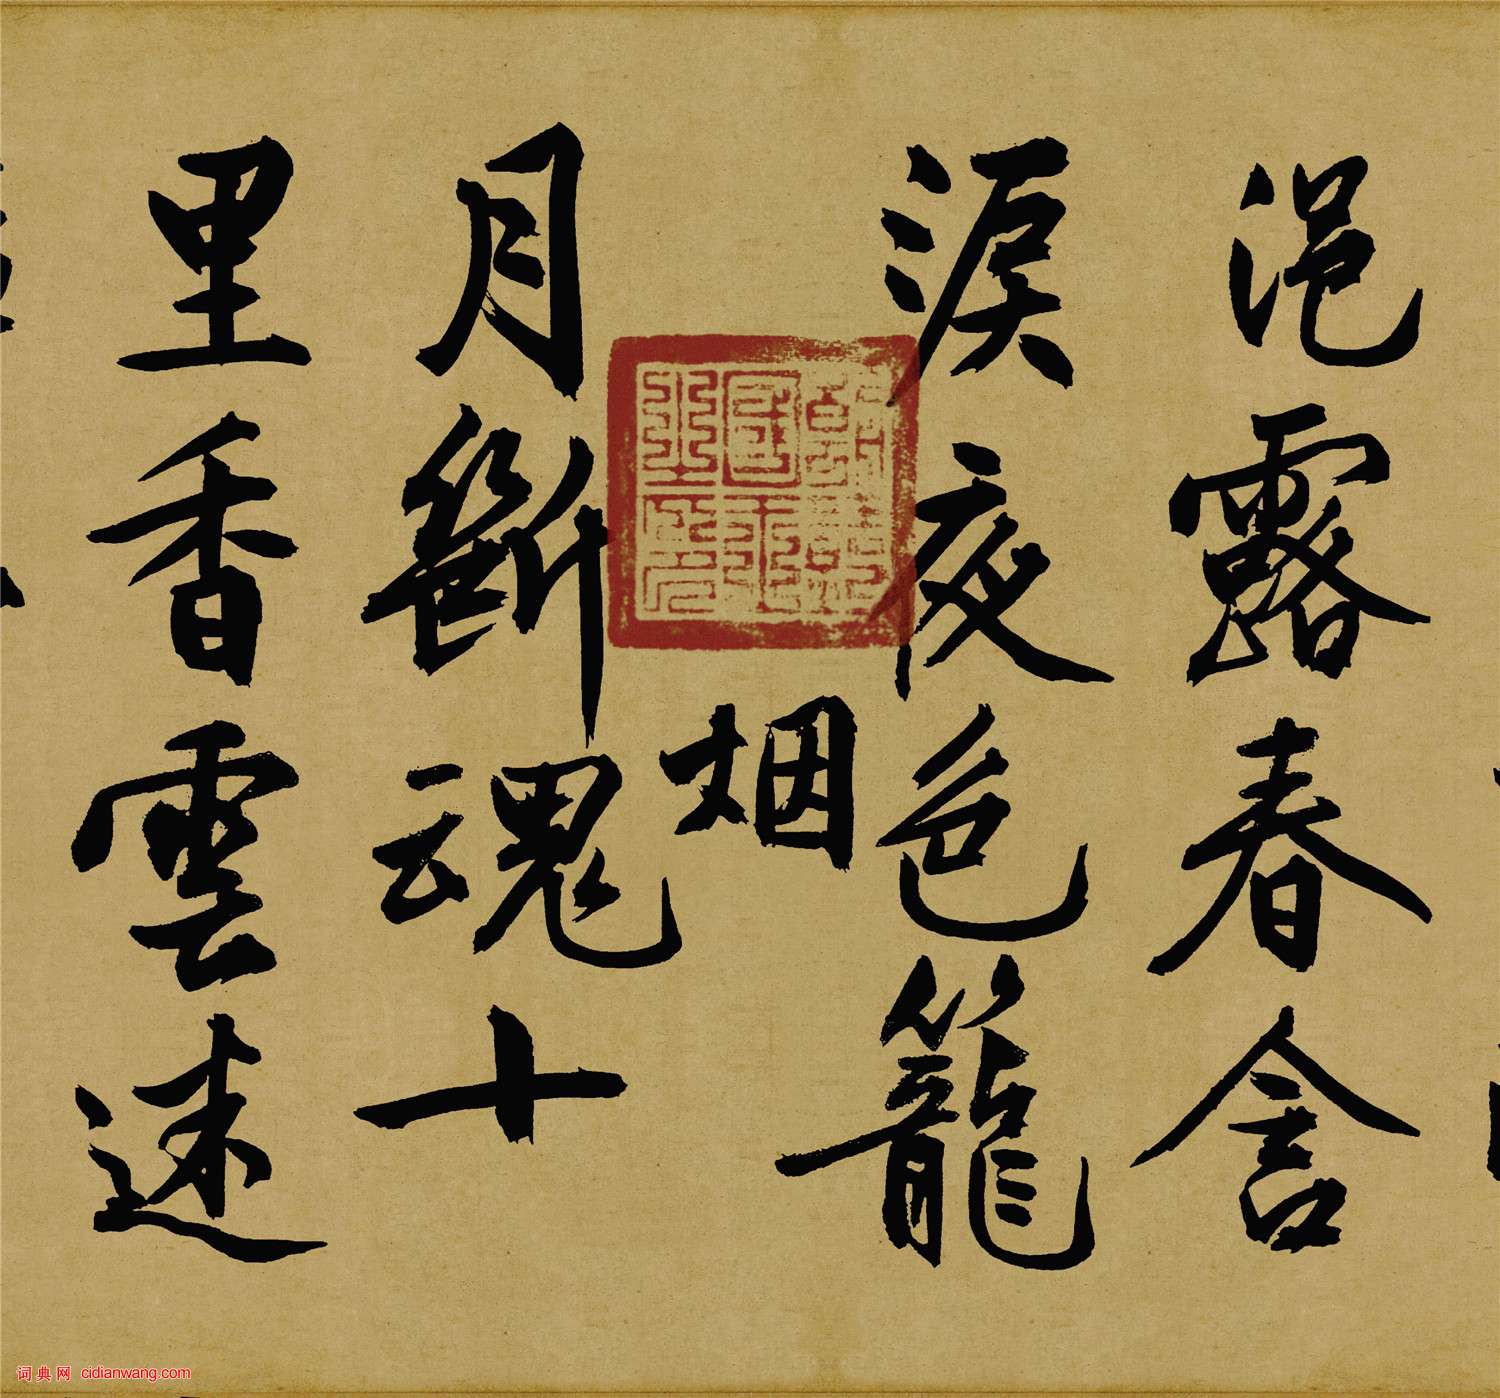 浥露春含
淚夜色籠
烟
月斷魂十
里香雲迷
词典网 cidianwang.com